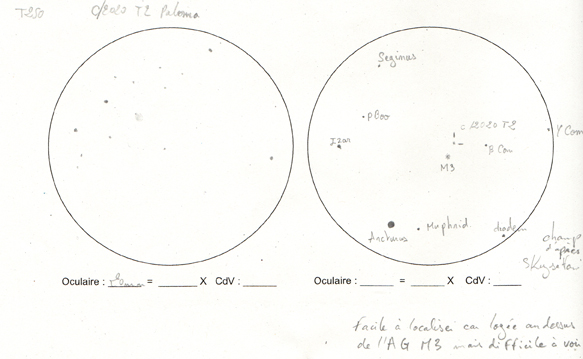 T250 C/2020 T2 Palomar
Seginus
ρ Boo
Izar
C/2020 T2
γ Com
β Com
M3
Arcturus
Muphrid
diadem
champ
d'après
Oculaire : = X CdV :
Oculaire : = X CdV :
Facile à localiser car logée au dessus
de l'AG M3 mais difficile à voir